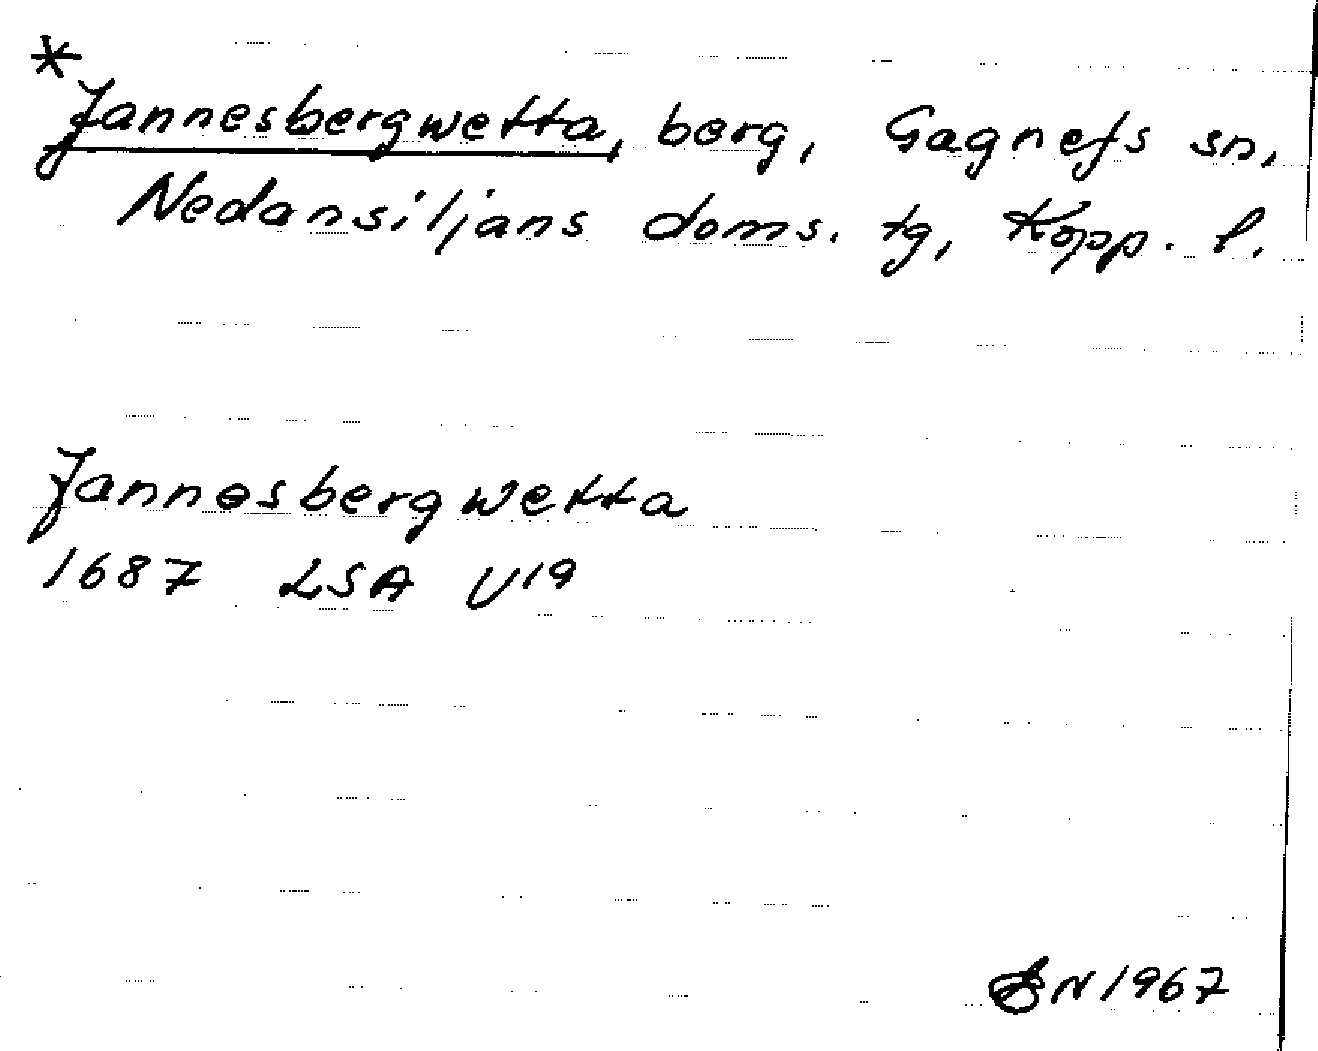 *
Jannesbergwetta, berg, Gagnefs sn,
Nedansiljans doms. tg, Kopp. l.
Jannesbergwetta
1687 LSA U19
1967